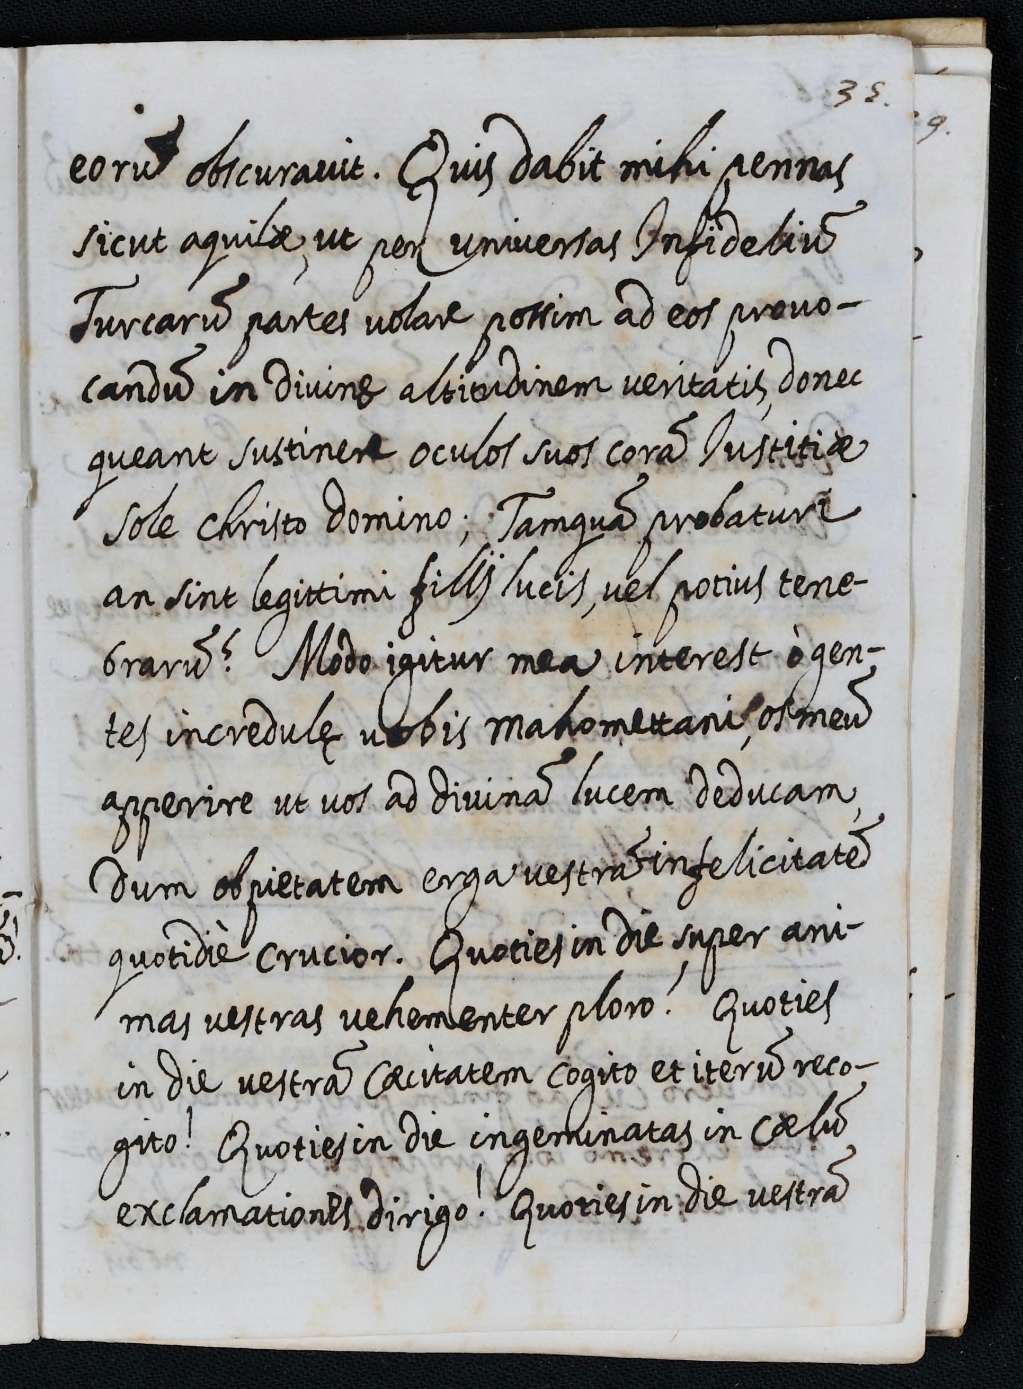 35.
9.
eorũ obscurauit. Quis dabit mihi pennas
sicut aquilæ, ut per universas Infideliũ
Turcarũ partes volare possim ad eos provo-
candũ in divinę altitudinem veritatis, donec
queant sustinere oculos suos corã Iustitiæ
sole Christo domino; Tamquã probaturi
an sint legittimi filÿ lucis, vel potius tene-
brarũ? Modo igitur mea interest ò gen-
tes incredulę vobis Mahomettani, os meũ
apperire ut vos ad divinã lucem deducam,
Dum ob pietatem erga vestrã infelicitatẽ
quotidiè crucior. Quoties in die super ani-
mas vestras vehementer ploro! Quoties
in die vestrã cæcitatem cogito et iterũ reco-
gito! Quoties in die ingeminatas in cælũ
exclamationes dirigo! Quoties in die vestrã